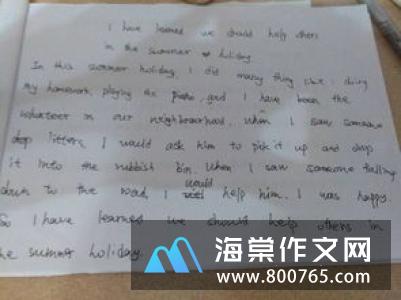 I have learned we should help others
in the summer holiday
In this summer holiday, I did many thing like: doing
my homework, playing the piano, and I have been the
volunteer in our neighbourhood. When I saw someone
drop litters, I would ask him to pick it up and drop
it into the rubbish bin. When I saw someone falling
down to the road, I would help him. I was happy.
So I have learned we should help others in
the summer holiday.
海棠作文网
www.800765.com